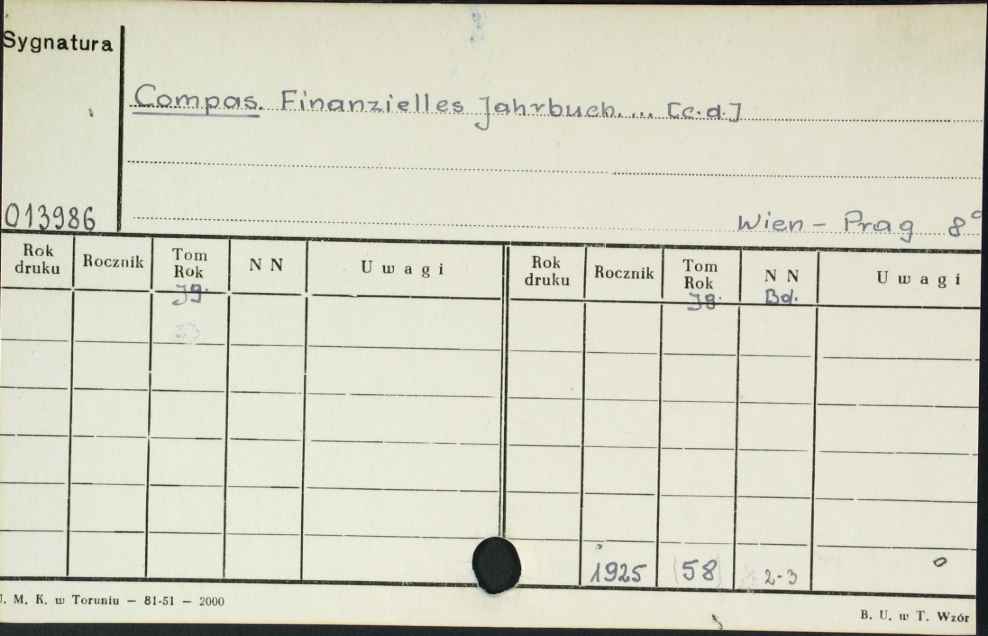 Sygnatura
Compas. Finanzielles Jahrbuch. ... [c.d.]
013986
Wien - Prag 8°
Rok druku Rocznik Tom Rok Jg. N N Uwagi Rok druku Rocznik Tom Rok Jg. N N Bd. Uwagi
1925 (58) 2-3
U. M. K. w Toruniu — 81-51 — 2000
B. U. w T. Wzór